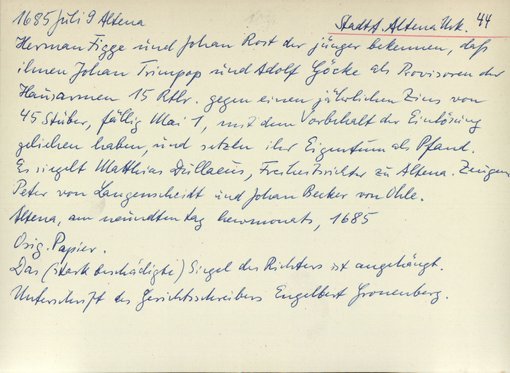 1685 Juli 9 Altena StadtA. Altena Urk. 44
Herman Figge und Johan Rost der jünger bekennen, daß
ihnen Johan Trimpop und Adolf Göcke als Provisoren der
Hausarmen 15 Rtlr. gegen einen jährlichen Zins von
45 Stüber, fällig Mai 1, mit dem Vorbehalt der Einlösung
geliehen haben, und setzen ihr Eigentum als Pfand.
Es siegelt Matthias Dullaeus, Freiheitsrichter zu Altena. Zeugen
Peter von Langenscheidt und Johan Becker von Ohle.
Altena, am neundten tag hewmonats, 1685
Orig. Papier.
Das (stark beschädigte) Siegel des Richters ist angehängt.
Unterschrift des Gerichtsschreibers Engelbert Gronenberg.